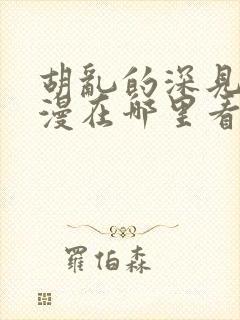 胡亂的深見
漫在哪里看
羅伯森